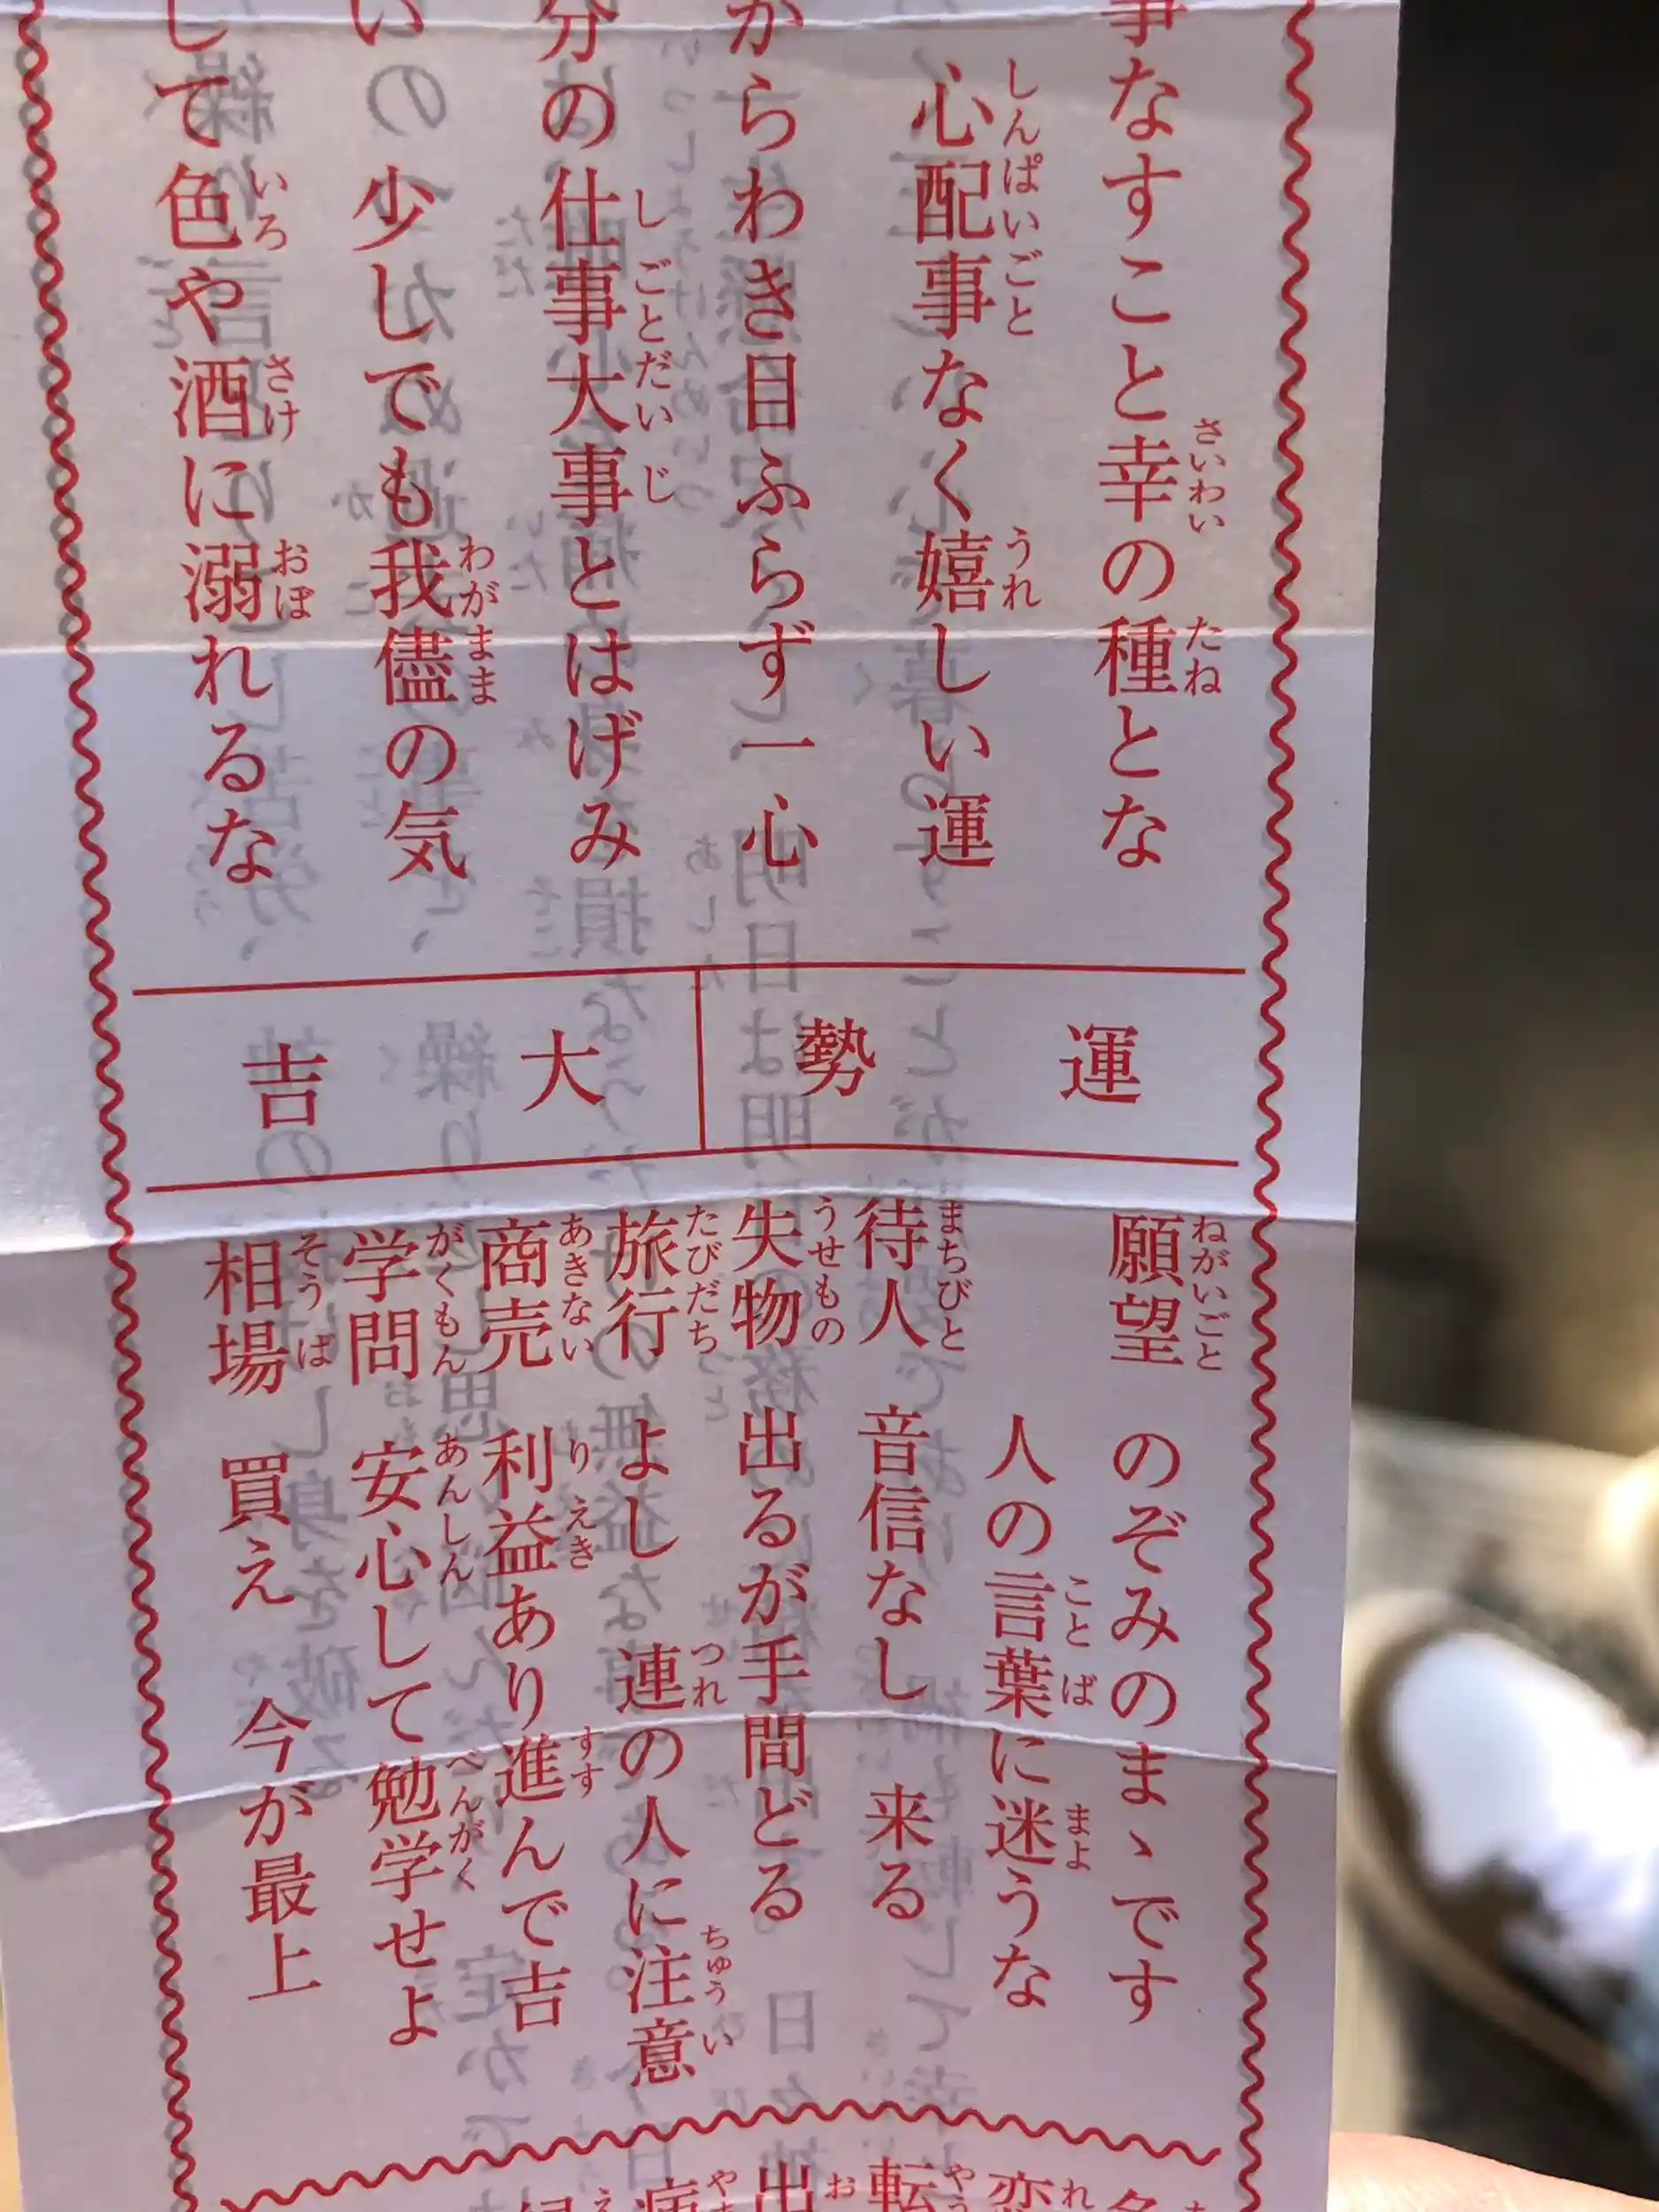 事なすこと幸の種とな
心配事なく嬉しい運
からわき目ふらず一心
分の仕事大事とはげみ
いの少しでも我儘の気
して色や酒に溺れるな
運勢
大吉
願望 のぞみのまゝです
人の言葉に迷うな
待人 音信なし 来る
失物 出るが手間どる
旅行 よし 連の人に注意
商売 利益あり進んで吉
学問 安心して勉学せよ
相場 買え 今が最上